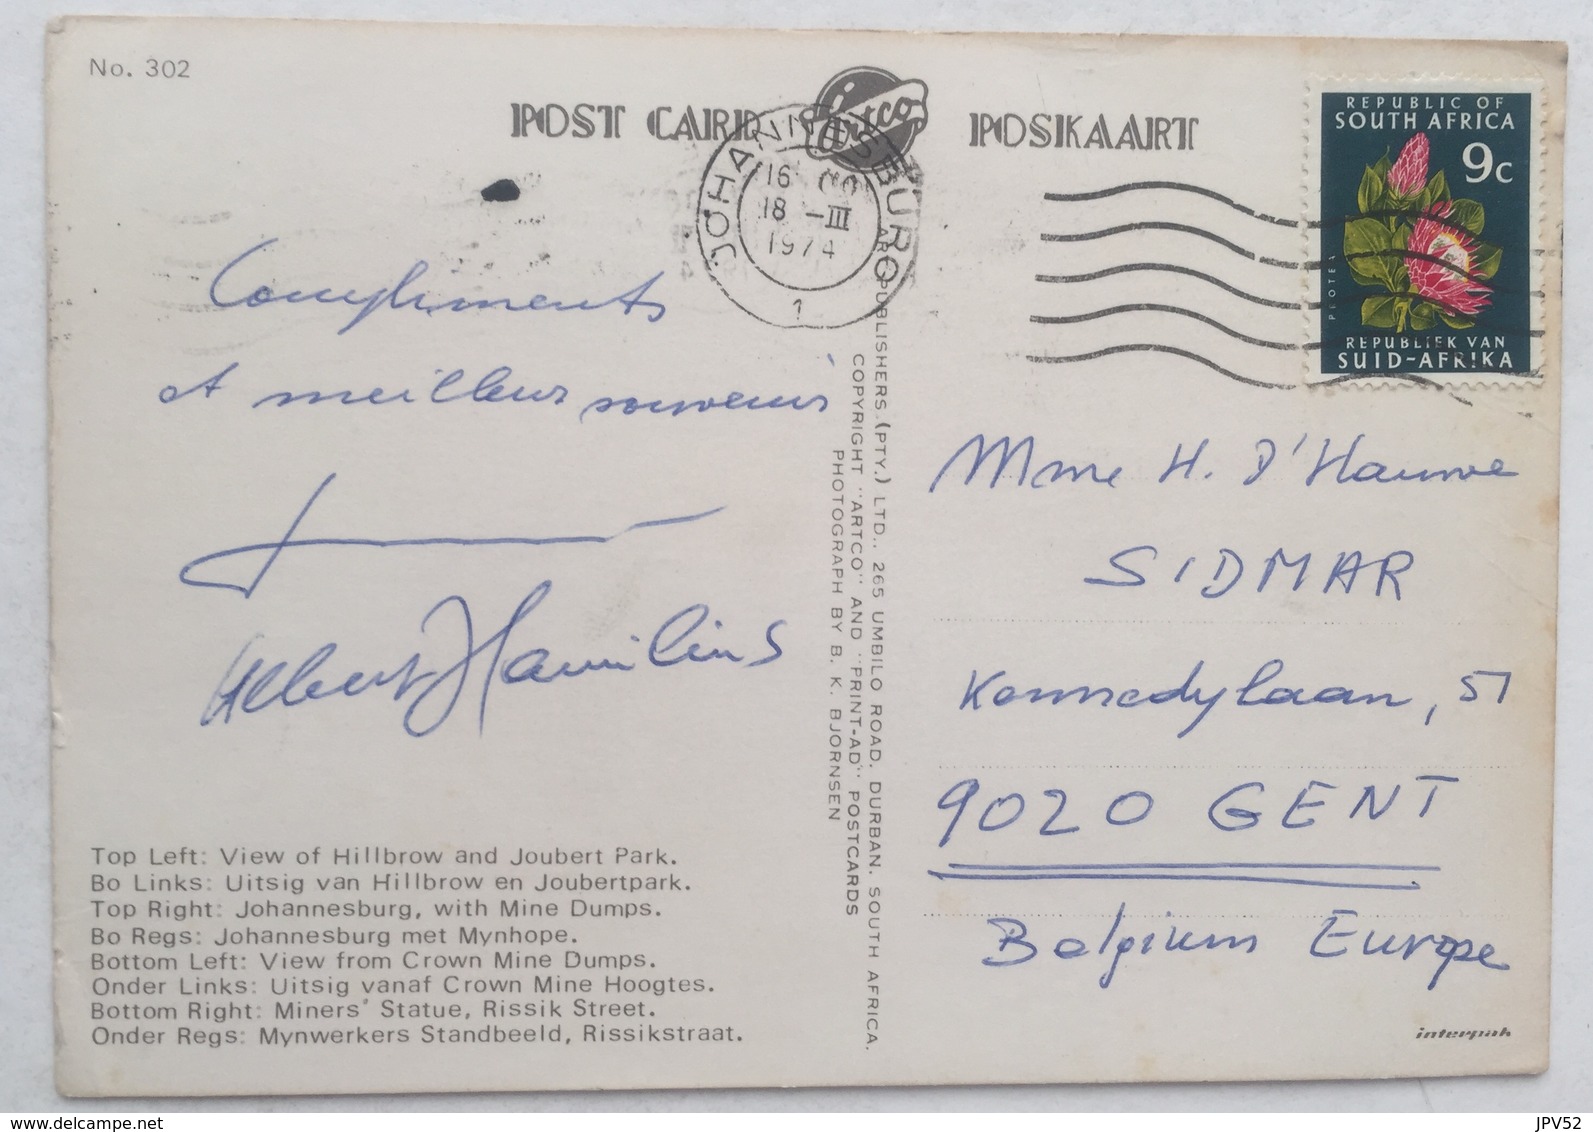 No. 302
POST CARD
artco
POSKAART
REPUBLIC OF
SOUTH AFRICA
9c
PROTEA
REPUBLIEK VAN
SUID-AFRIKA
JOHANNESBURG
16
18 -III
1974
1
Compliments
et meilleur souvenir
Albert Hamilius
Mme H. D'Hauwe
SIDMAR
Kennedylaan, 51
9020 GENT
Belgium Europe
ARTCO PUBLISHERS. (PTY.) LTD., 265 UMBILO ROAD, DURBAN. SOUTH AFRICA.
COPYRIGHT "ARTCO" AND "PRINT-AD" POSTCARDS
PHOTOGRAPH BY B. K. BJORNSEN
Top Left: View of Hillbrow and Joubert Park.
Bo Links: Uitsig van Hillbrow en Joubertpark.
Top Right: Johannesburg, with Mine Dumps.
Bo Regs: Johannesburg met Mynhope.
Bottom Left: View from Crown Mine Dumps.
Onder Links: Uitsig vanaf Crown Mine Hoogtes.
Bottom Right: Miners' Statue, Rissik Street.
Onder Regs: Mynwerkers Standbeeld, Rissikstraat.
interpak
www.delcampe.net
JPV52